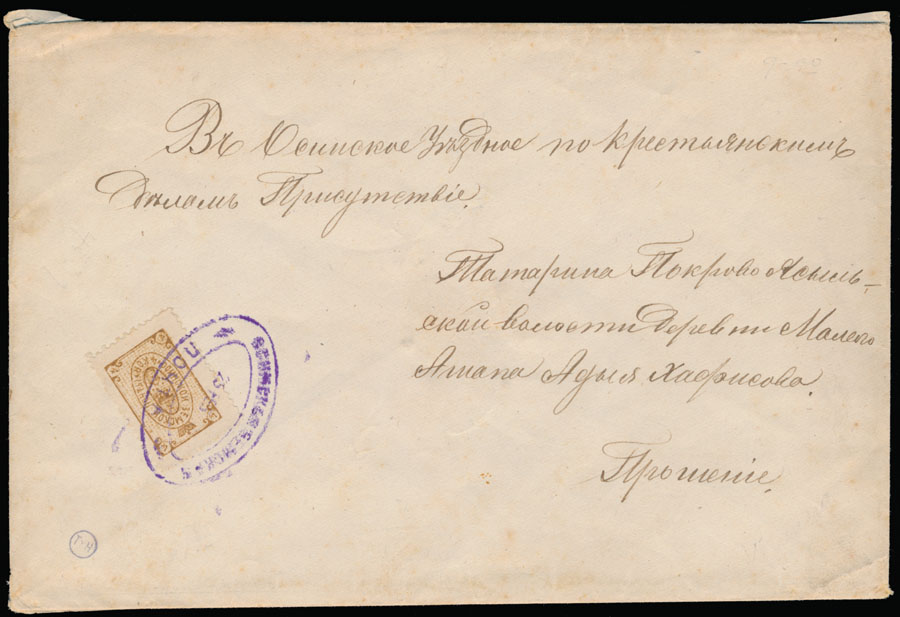 Въ Осинское Уѣздное по крестьянскимъ
дѣламъ Присутствіе.
Татарина Покрово Ясыль-
ской волости деревни Малого
Ашапа Адыя Хафисова.
Прошеніе.
ОСИНСКАЯ ЗЕМСКАЯ